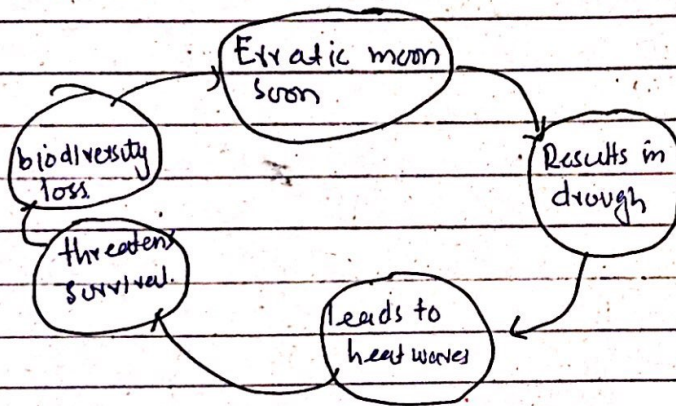 Erratic moon
soon
Results in
drough
leads to
heat waves
threatens
survival.
biodiversity
loss